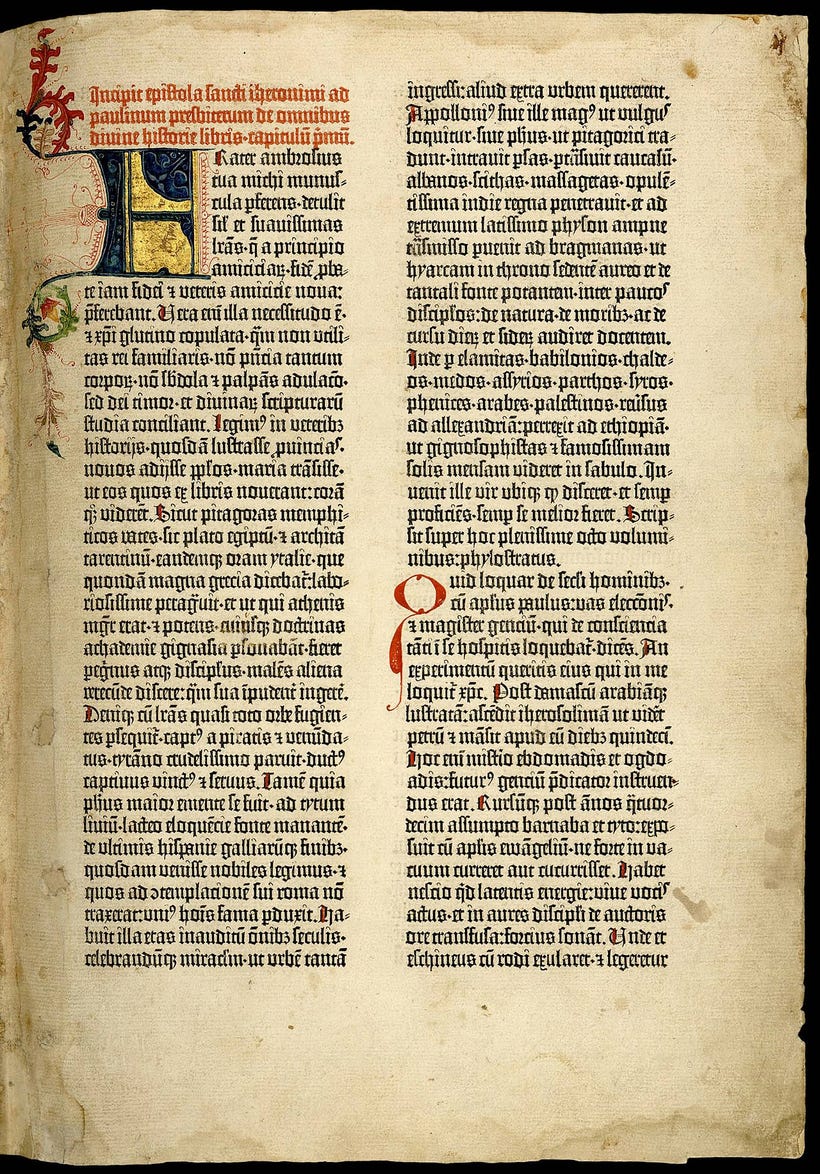 Incipit epistola sancti iheronimi ad
paulinum presbiterum de omnibus
diuine historie libris·capitulū p̄mū.
Frater ambrosius
tua michi munus-
cula ꝑferens·detulit
sil̉ et suauissimas
lr̄as·q̄ a principio
amiciciaꝝ·fidē ꝓba-
te iam fidei ⁊ veteris amicicie noua:
p̄ferebant. Uera em̄ illa necessitudo ē·
⁊ xp̄i glutino copulata·q̄m non vtili-
tas rei familiaris·nō pn̄cia tantum
corpoꝝ·nō sb̄dola ⁊ palpās adulacō·
sed dei timor·et diuinaꝝ scripturarū
studia conciliant. Legimꝰ in veteribꝫ
historijs·quosdā lustrasse ꝓuincias·
nouos adijsse pp̄los·maria trāsisse·
ut eos quos ex libris nouerant: corā
qꝫ viderēt. Sicut pitagoras memphi-
ticos vates·sic plato egiptū·⁊ architā
tarentinū·eandemqꝫ oram ytalie·que
quondā magna grecia dicebat̄: labo-
riosissime peragͣuit·et ut qui athenis
mgr̄ erat·⁊ potens·cuiusqꝫ doctrinas
achademie gignasia ꝑsonabāt·fieret
peg̓inus atqꝫ discipl̓us·malēs aliena
verecūde discere: q̄m sua īpudent̄ ingerē.
Deniqꝫ cū lr̄as quasi toto orbe fugien-
tes ꝑsequit̄·captꝰ a piratis ⁊ venūda-
tus·tyrāno crudelissimo paruit·ductꝰ
captiuus vinctꝰ ⁊ seruus. Tamē quia
ph̓us maior emente se fuit·ad tytum
liuiū·lacteo eloquēcie fonte manantē·
de vltimis hispanie galliarūqꝫ finibꝫ·
quosdam venisse nobiles legimus·⁊
quos ad ↄtemplacionē sui roma nō
traxerat: vniꝰ hoīs fama ꝑduxit. Ha-
buit illa etas inauditū oīnibꝫ seculis·
celebrandūqꝫ miracl̓m·ut vrbē tantā
ingressi: aliud extra vrbem quererent.
Appolloniꝰ siue ille magꝰ ut vulgus
loquitur·siue ph̓us·ut pitagorici tra-
dunt·intrauit ꝑsas·ptͣnsiuit caucasū·
albanos·scithas·massagetas·opulē-
tissima indie regna penetrauit·et ad
extremum latissimo physon ampne
tͣnsmisso puenit ad bragmanas·ut
hyarcam in throno sedentē aureo et de
tantali fonte potantem·inter paucos
discipl̓os: de natura·de moribꝫ·ac de
cursu dieꝝ et sideꝝ audiret docentem.
Inde ꝑ elamitas·babilonios·chalde-
os·medos·assyrios·parthos·syros·
phenices·arabes·palestinos·reūsus
ad allexandriā: perrexit ad ethiopiā·
ut gignosophistas ⁊ famosissimam
solis mensam videret in sabulo. In-
uenit ille vir vbiqꝫ qꝫ disceret·et semꝑ
proficiēs·semꝑ se melior fieret. Scrip-
sit super hoc plenissime octo volumi-
nibus: phylostratus.
Quid loquar de secli hominibꝫ·
cū apl̓us paulus: vas elecciōis·
⁊ magister genciū·qui de consciencia
tāti ī se hospitis loquebat̄·dicēs. An
experimentū queritis eius qui in me
loquit̄ xp̄c. Post damascū arabiāqꝫ
lustratā: ascēdit iherosolimā ut videt̄
petrū ⁊ māsit apud eū diebꝫ quindecī.
Hoc em̄ mistīo ebdomadis et ogdo-
adis: futurꝰ genciū p̄dicator instruen-
dus erat. Rursūqꝫ post ānos q̄tuor-
decim assumpto barnaba et tyto: expo-
suit cū aplīs ewāgeliū·ne forte in va-
cuum curreret aut cucurrisset. Habet
nescio qd̄ latentis energie: viue vocis
actus·et in aures discipl̓i de auctoris
ore transfusa: forcius sonāt. Unde et
eschineus cū rodi exularet·⁊ legeretur